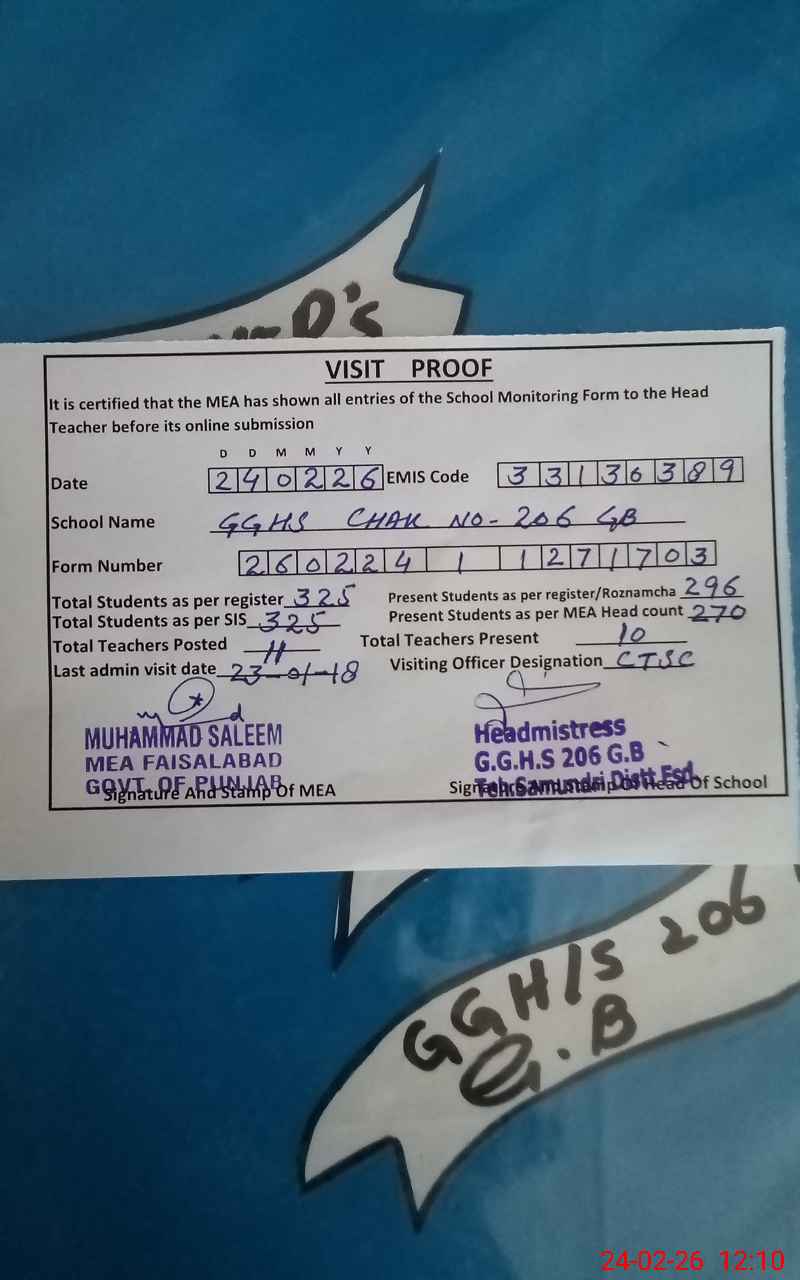 D's
VISIT PROOF
It is certified that the MEA has shown all entries of the School Monitoring Form to the Head
Teacher before its online submission
D D M M Y Y
Date 240226 EMIS Code 33136389
School Name GGHS CHAK NO- 206 GB
Form Number 260224 1 1271703
Total Students as per register 325 Present Students as per register/Roznamcha 296
Total Students as per SIS 325 Present Students as per MEA Head count 270
Total Teachers Posted 11 Total Teachers Present 10
Last admin visit date 23-01-18 Visiting Officer Designation CTSC
MUHAMMAD SALEEM
MEA FAISALABAD
GOVT. OF PUNJAB
Signature And Stamp Of MEA
Headmistress
G.G.H.S 206 G.B
Teh.Samundri Distt Fsd.
Signature And Stamp Of Head Of School
GGH/S 206
G.B
24-02-26 12:10